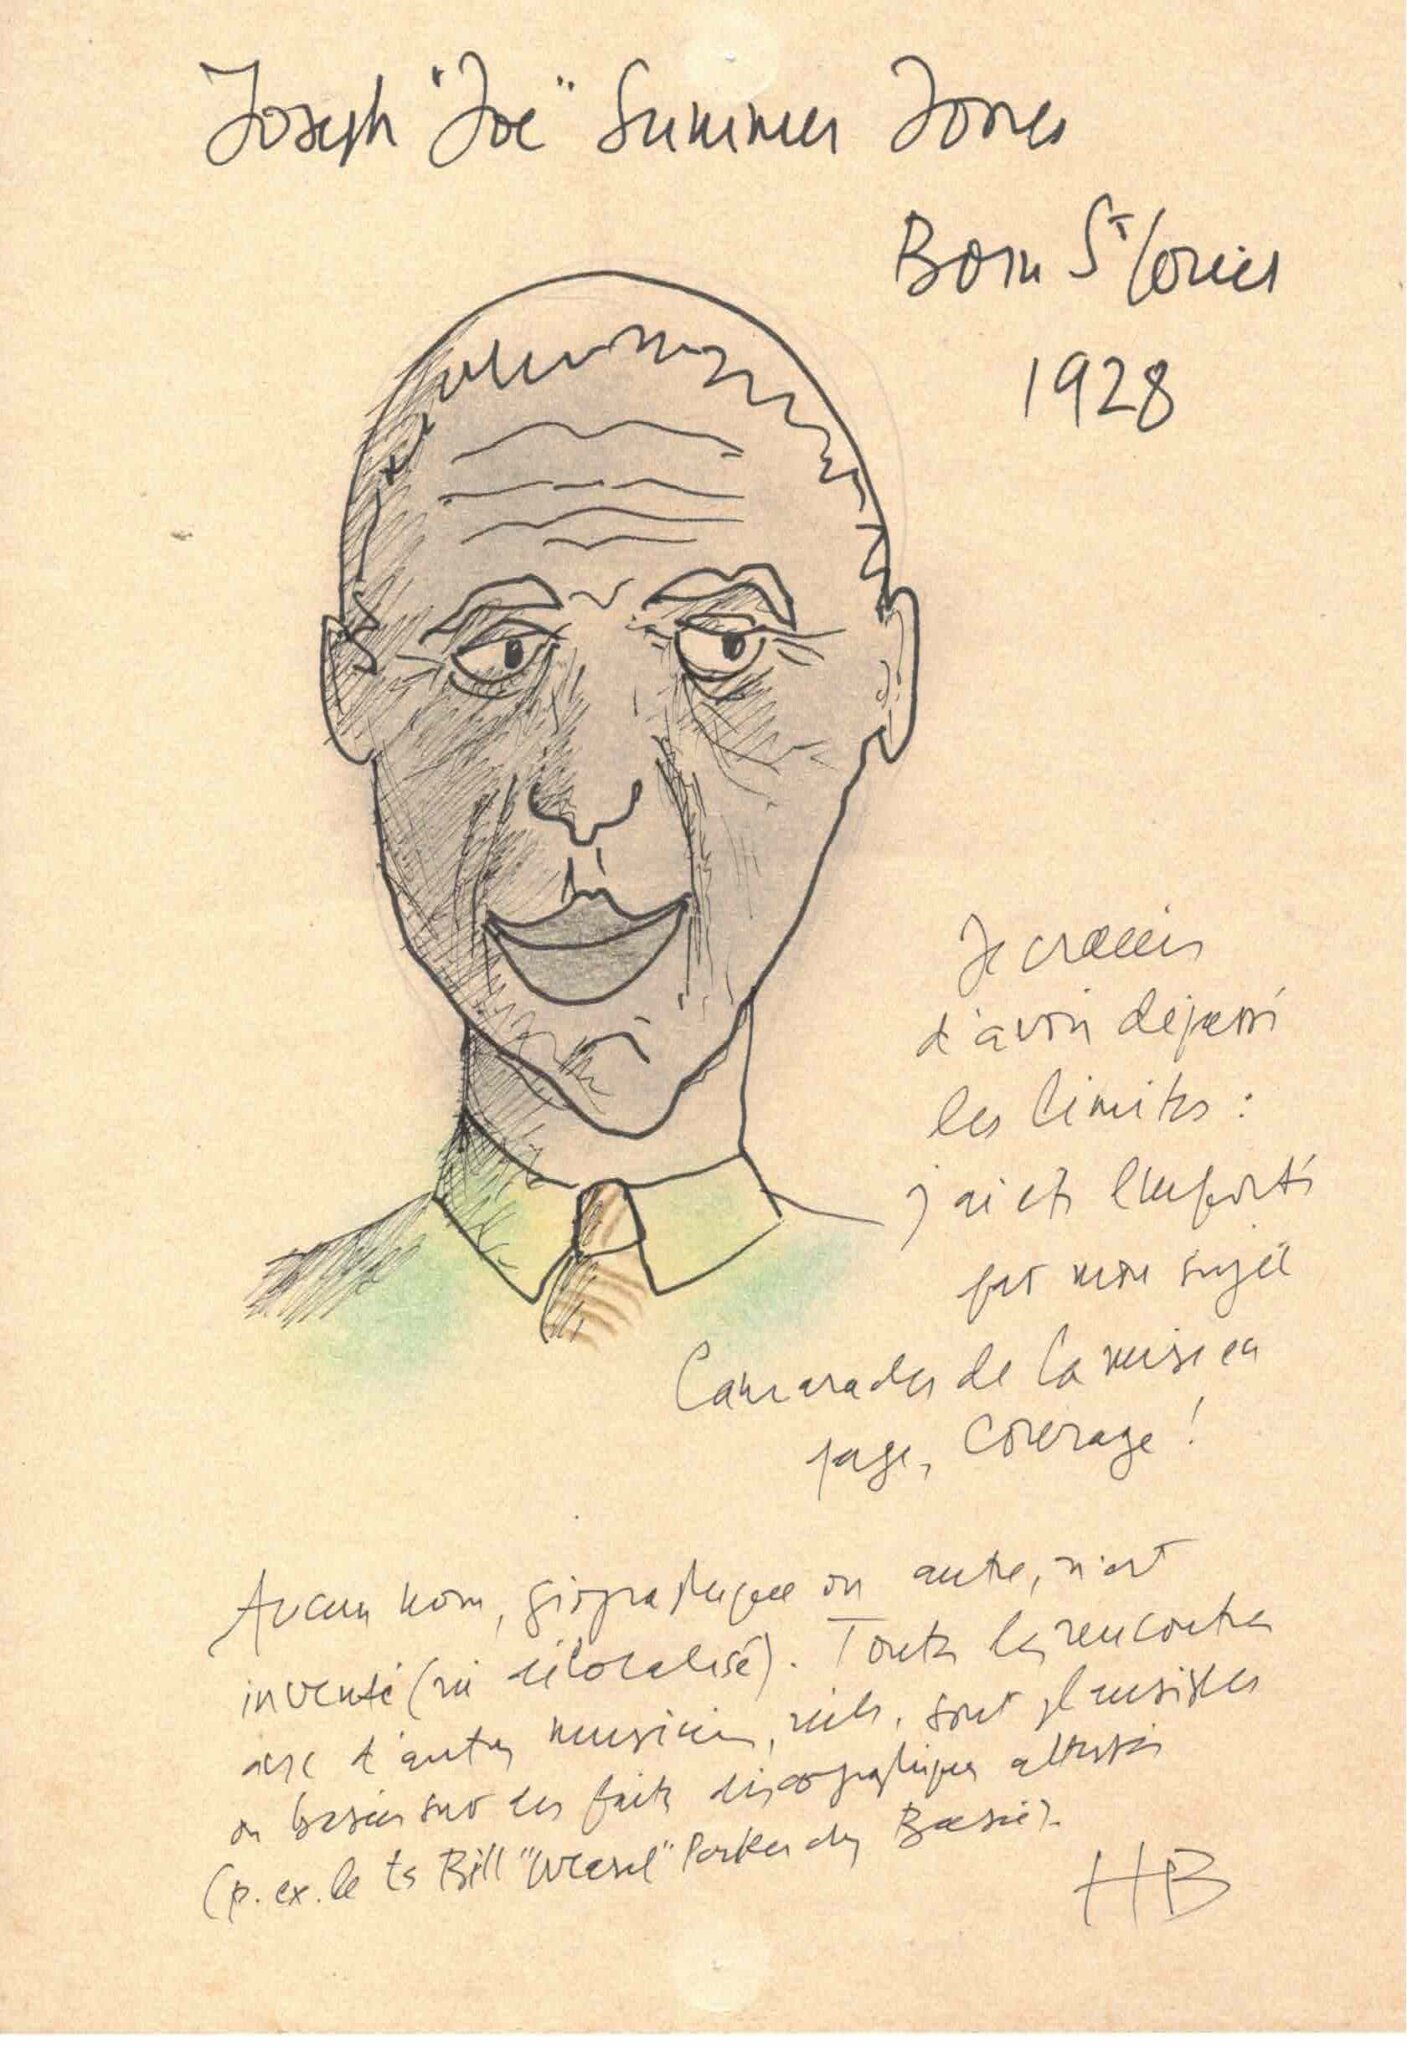 Joseph "Joe" Summer Jones
Born St Louis
1928
Je crains
d'avoir dépassé
les limites :
j'ai été emporté
par mon sujet
Camarades de la mise en
page, courage !
Aucun nom, géographique ou autre, n'est
inventé (ni délocalisé). Toutes les rencontres
avec d'autres musiciens, réels, sont plausibles
ou basées sur des faits discographiques attestés
(p. ex. le ts Bill "Weasel" Parker chez Basie).
HB